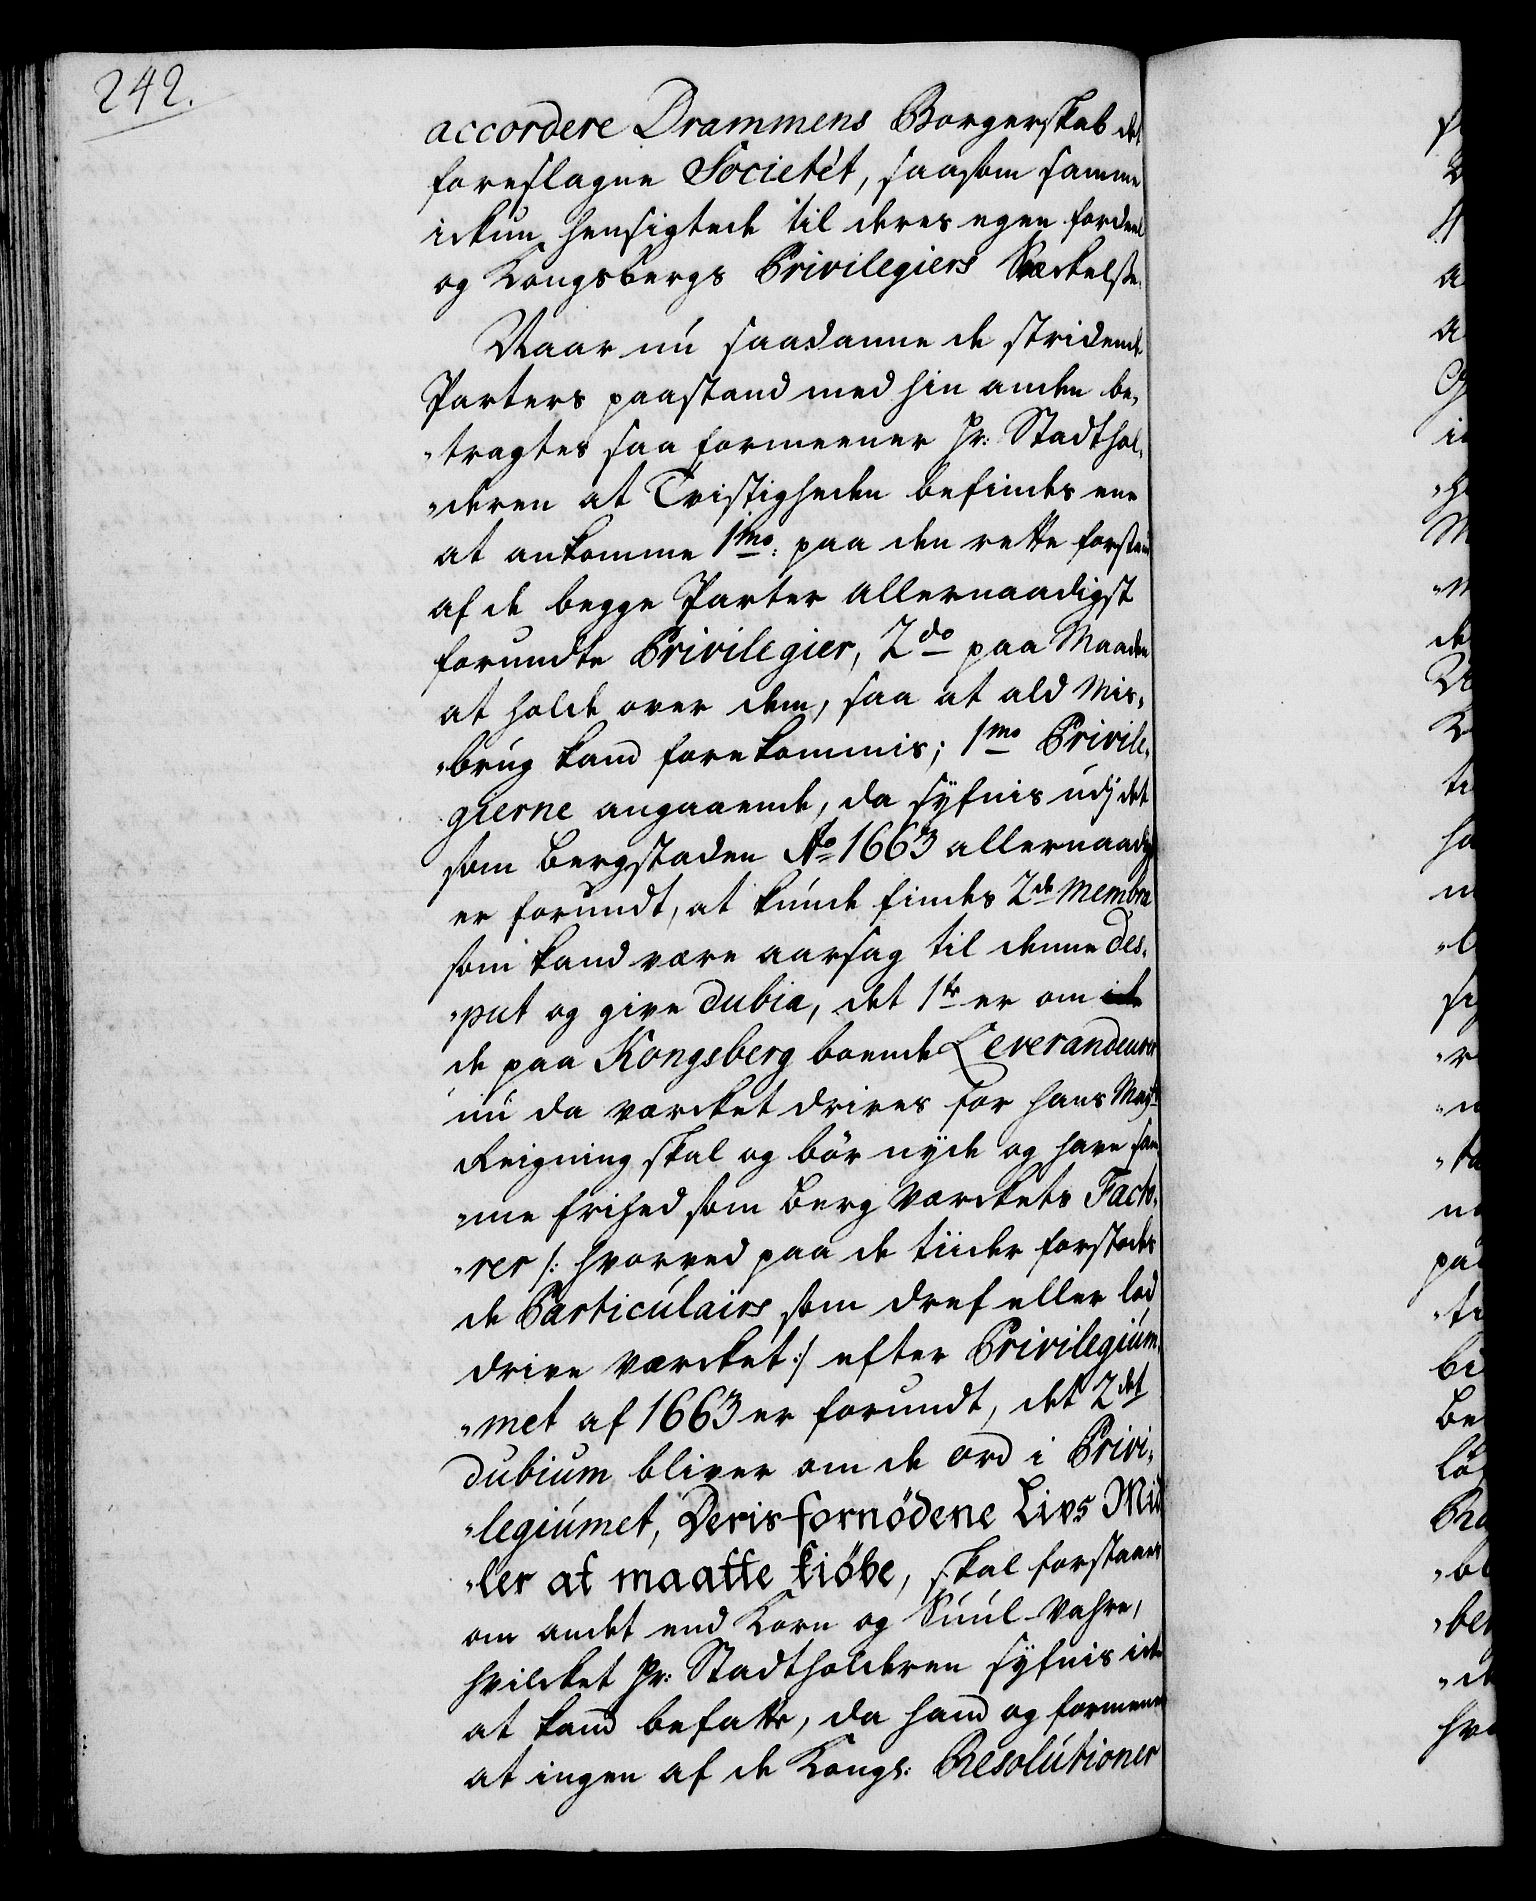 242.
accordere Drammens Borgerskab det
foreslagne Societét, saasom samme
ickun hensigtede til deres egen fordeel
og Kongsbergs Privilegiers Svæckelse.
Naar nú saadanne de stridende
Parters paastand med hin anden be,
"tragtes saa formeener Hr: Stadthol,
"deren at Tvistigheden befindes ene
at ankomme 1mo: paa den rette forstand
af de begge Parter allernaadigst
forundte Privilegier, 2do paa Maaden
at holde over dem, saa at ald Mis,
"brúg kand forekommis; 1mo Privile,
gierne angaaende, da sÿfnis udj det
som Bergstaden Ao 1663 allernaadigst
er forundt, at kúnde findes 2de Membra
som kand være aarsag til denne Des,
"put og give dubia, det 1te er om
de paa Kongsberg boende Leverandeurer
nú da værcket drives for hans Mayts
Reigning skal og bör nÿde og have sam
"me frihed som Berg Værckets Facto,
"rer /: hvorved paa de tiider forstodes
de Particúlairs som dref eller lod
drive Værcket :/ efter Privilegiúm,
"met af 1663 er forundt, det 2det
dubium bliver om de ord i Privi,
"legiúmet, Deris fornödene Livs Mid
"ler at maatte kiöbe, skal forstaaes
om andet end Korn og Súúl-Vahre,
hvilcket Hr: Stadtholderen sÿfnis icke
at kand befatte, da hand og formener
at ingen af de Kongl: Resolútioner